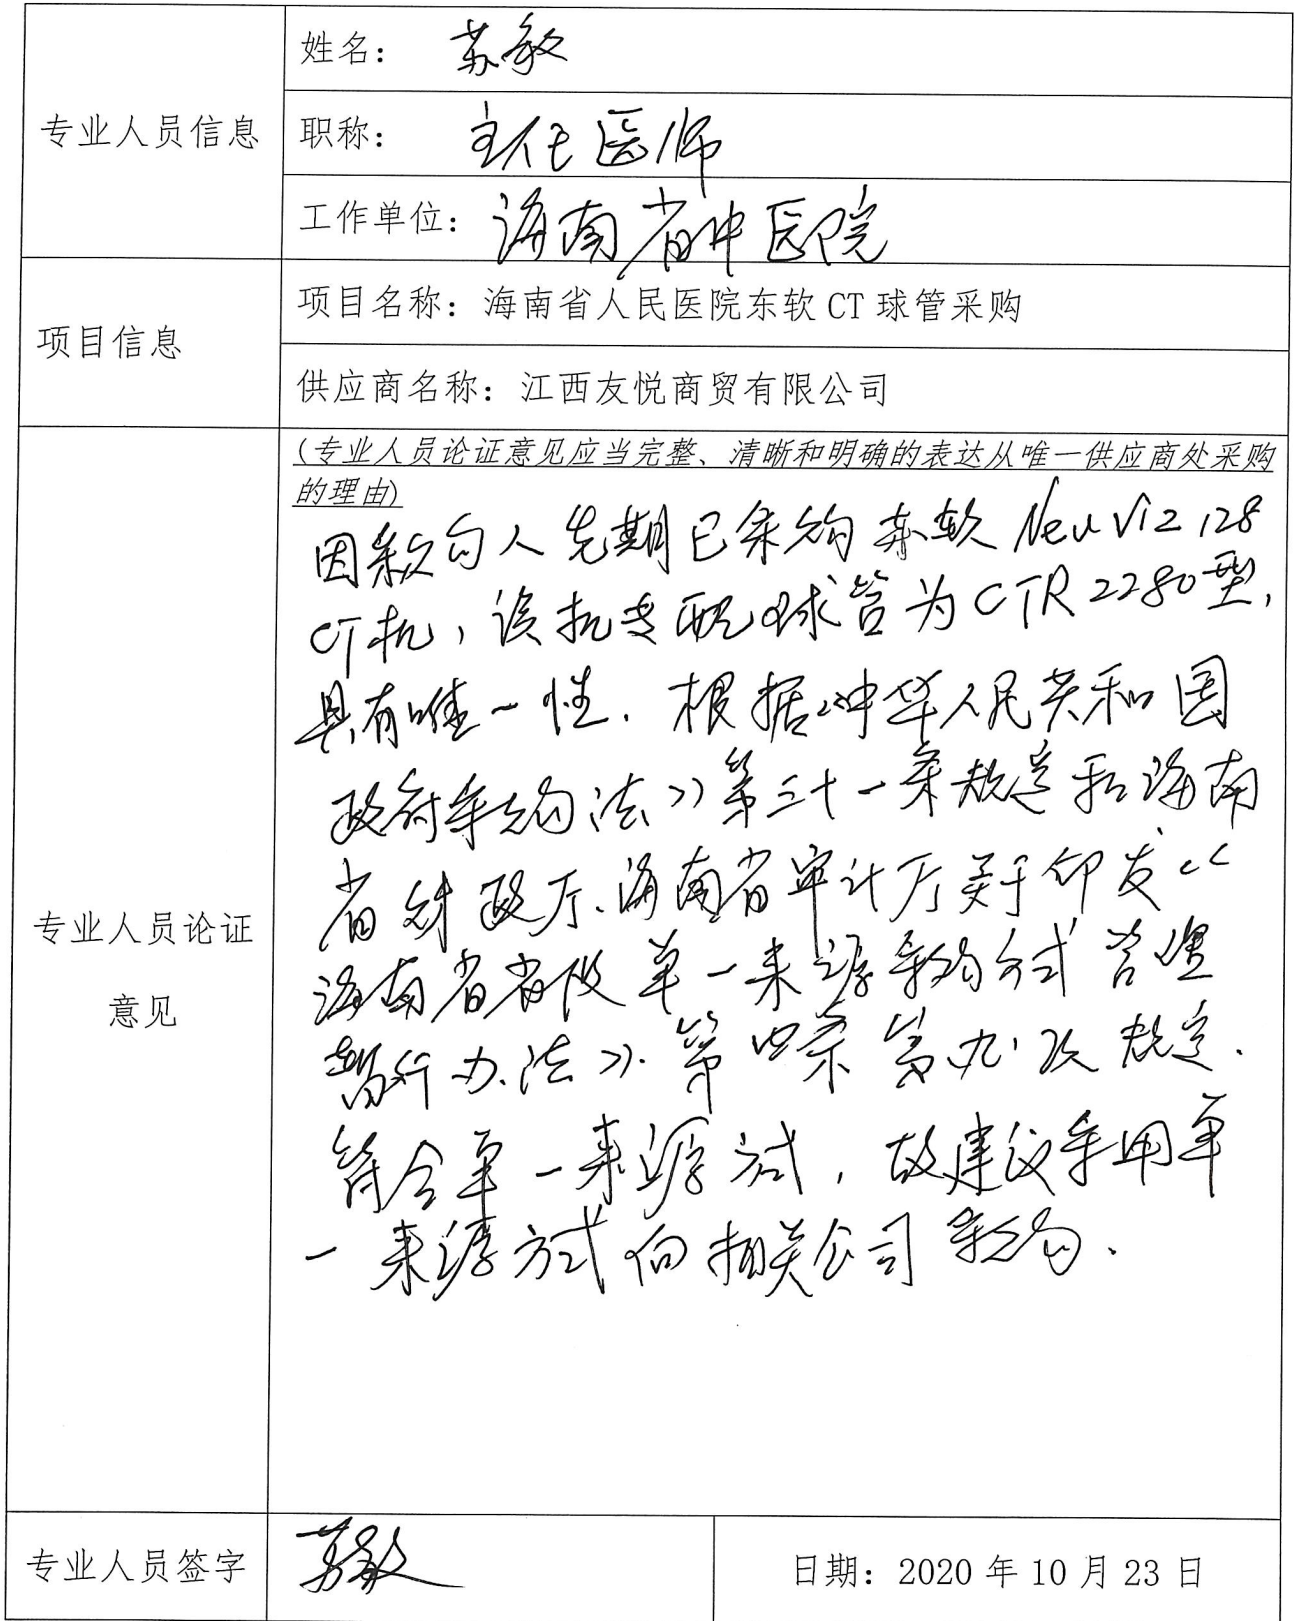 姓名：苏敏
专业人员信息
职称：主任医师
工作单位：海南省中医院
项目信息
项目名称：海南省人民医院东软CT球管采购
供应商名称：江西友悦商贸有限公司
(专业人员论证意见应当完整、清晰和明确的表达从唯一供应商处采购
的理由)
因采购人先期已采购东软 NeuViz 128
CT机，该机专配球管为CTR2280型，
具有唯一性．根据《中华人民共和国
政府采购法》第三十一条规定和海南
省财政厅、海南省审计厅关于印发《
海南省省级单一来源采购方式管理
暂行办法》．第四条第九．2次规定．
符合单一来源方式，故建议采用单
一来源方式向相关公司采购．
专业人员论证
意见
专业人员签字
苏敏
日期：2020年10月23日